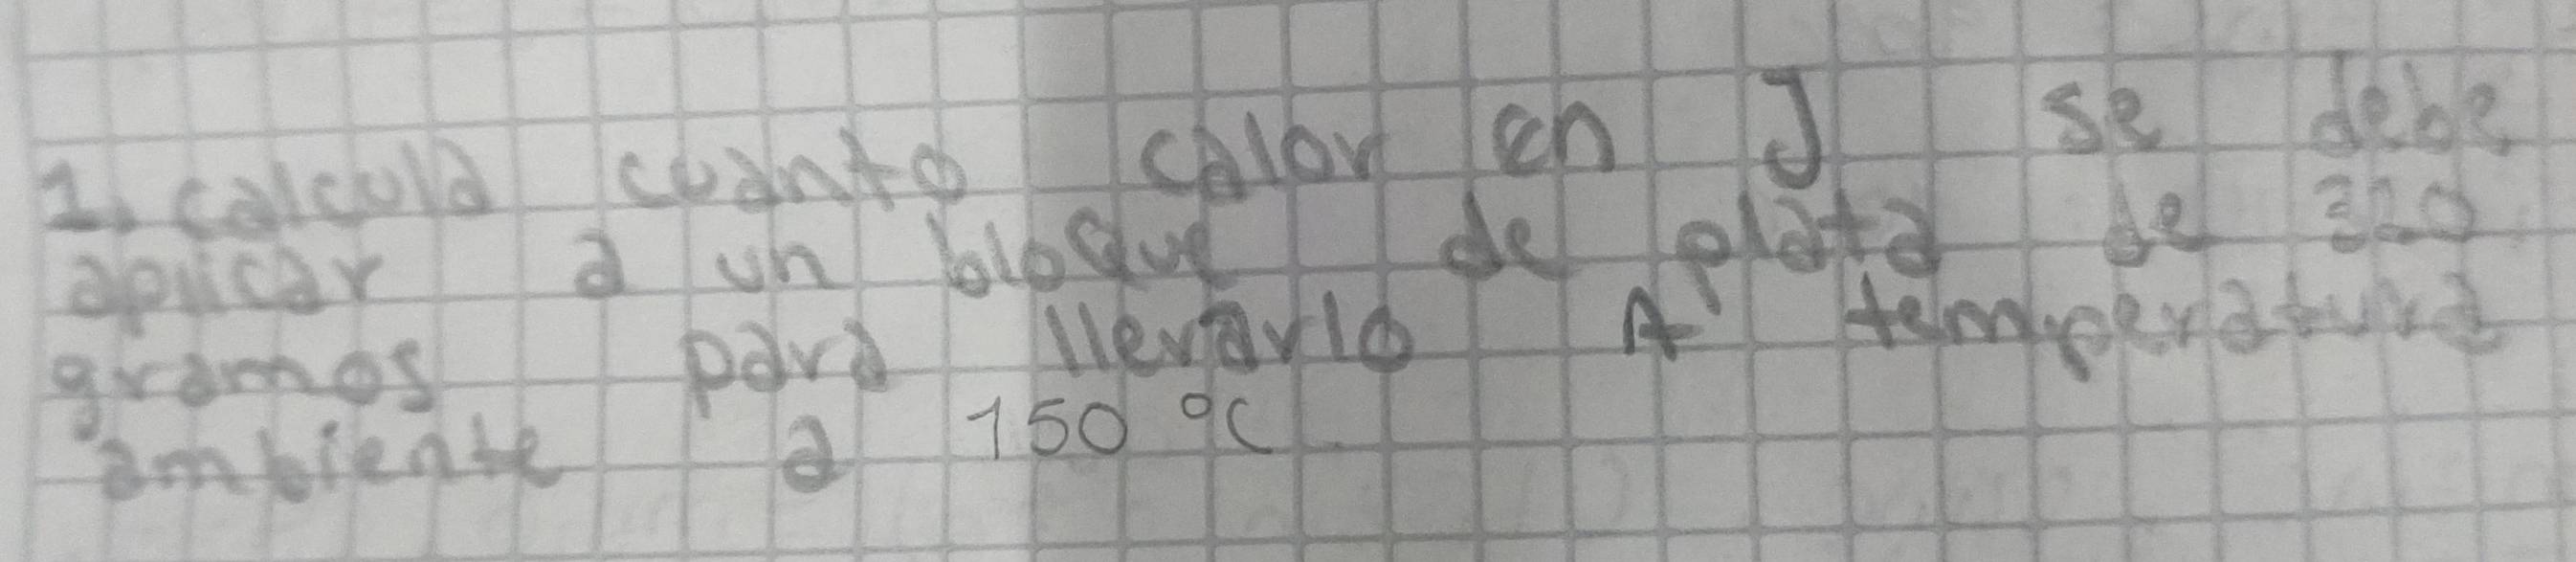 1. calcula cuanto calor en J se debe
aplicar a un bloque de plata de 320
gramos para llevarlo A temperatura
ambiente a 150 °C